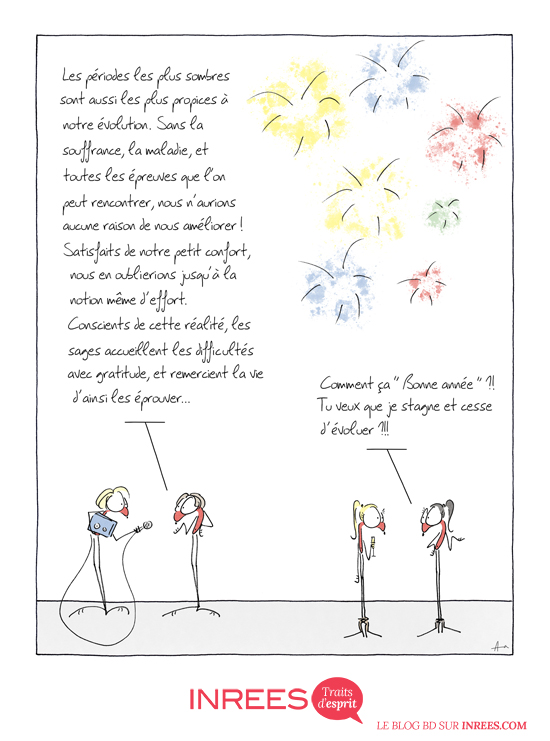 Les périodes les plus sombres
sont aussi les plus propices à
notre évolution. Sans la
souffrance, la maladie, et
toutes les épreuves que l'on
peut rencontrer, nous n'aurions
aucune raison de nous améliorer !
Satisfaits de notre petit confort,
nous en oublierions jusqu'à la
notion même d'effort.
Conscients de cette réalité, les
sages accueillent les difficultés
avec gratitude, et remercient la vie
d'ainsi les éprouver...
Comment ça " Bonne année " ?!
Tu veux que je stagne et cesse
d'évoluer ?!!
INREES
Traits
d'esprit
LE BLOG BD SUR INREES.COM